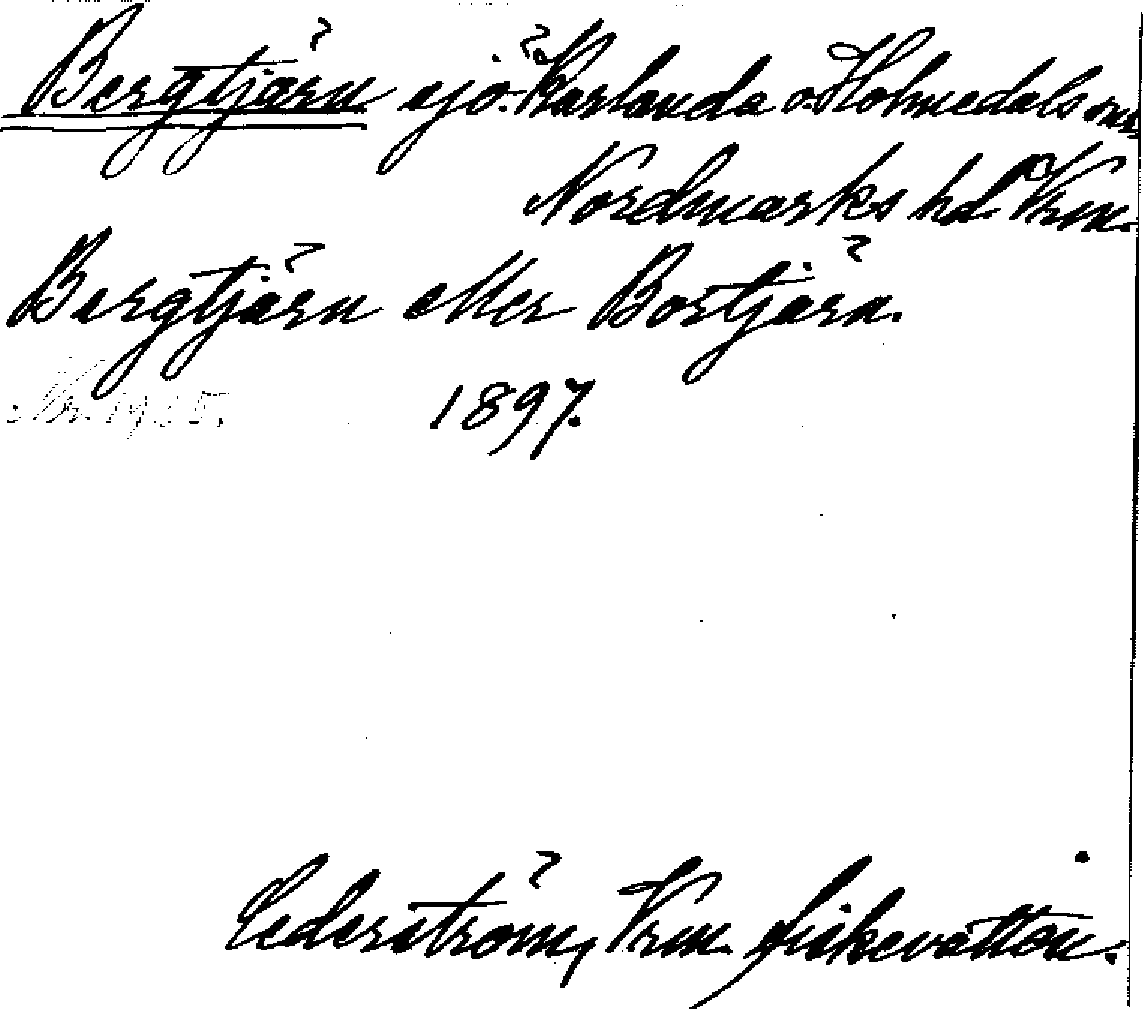 Bergtjärn sjö. Karlanda o. Holmedals snr
Nordmarks hd Vrm.
Bergtjärn eller Bortjärn.
1897.
Cederström, Vrm fiskevatten.